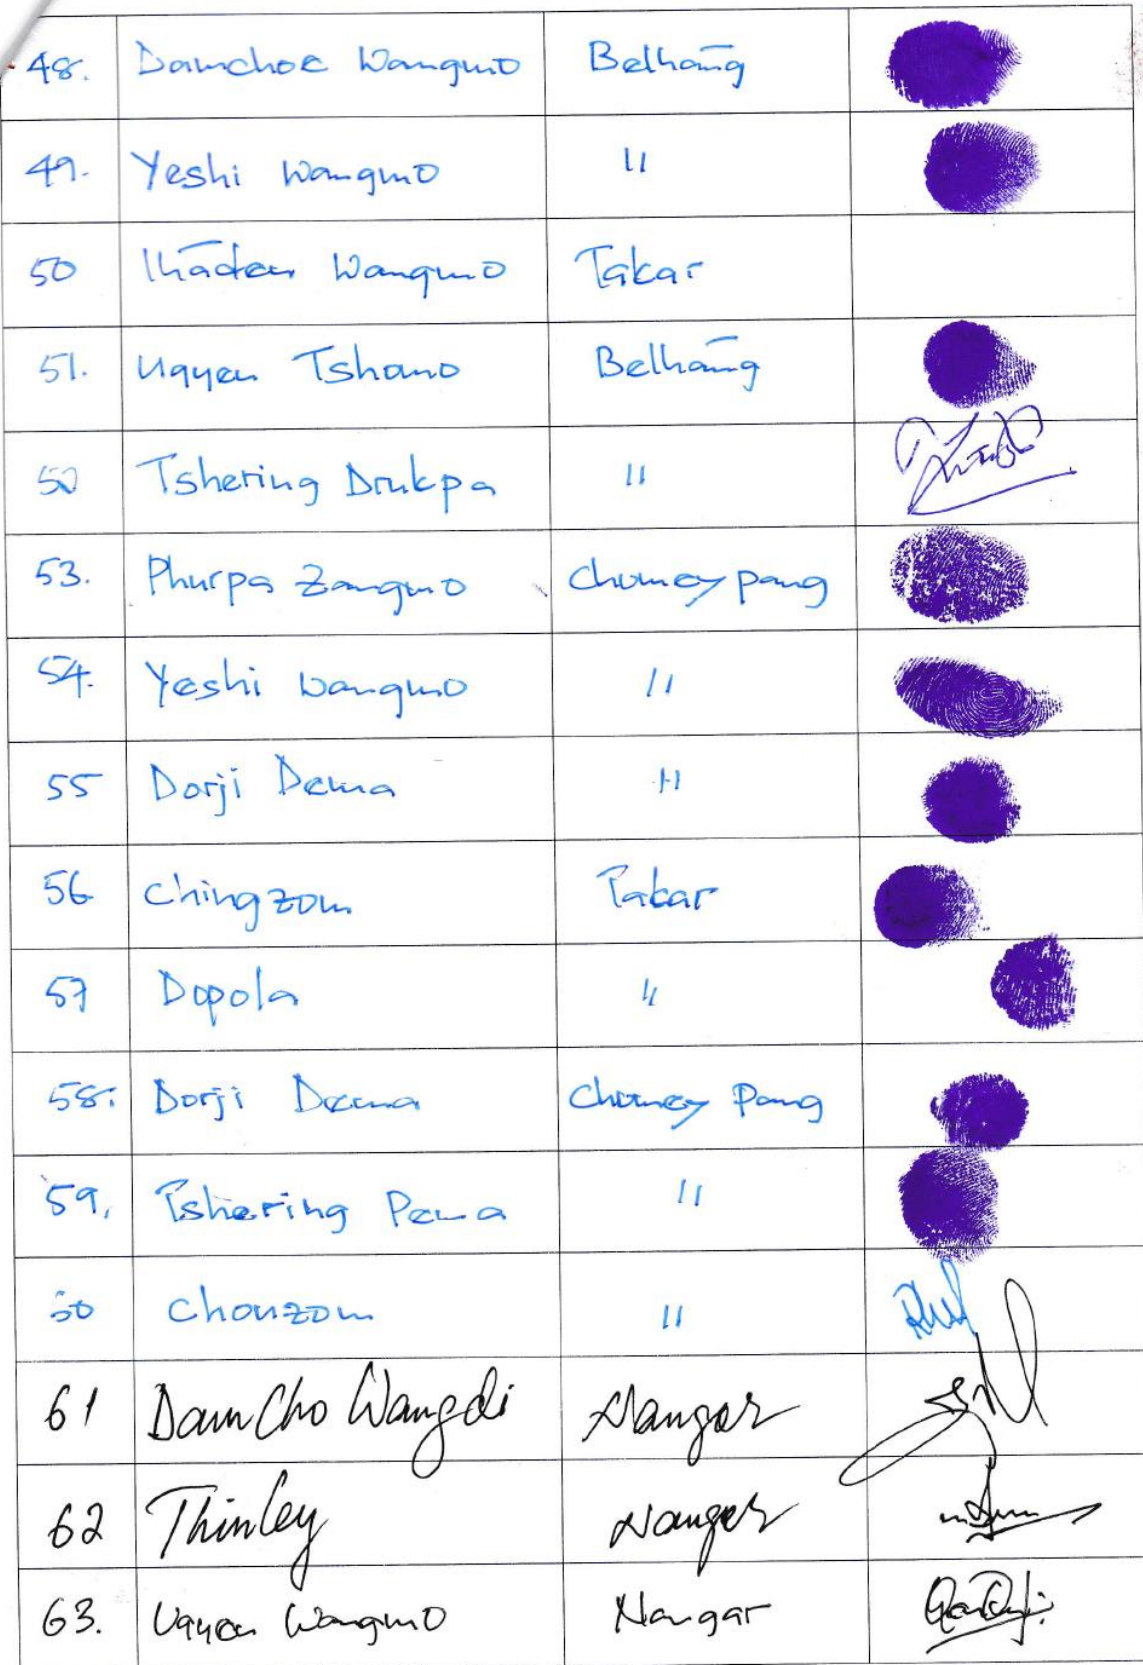 48. Damchoe Wangmo Belhang
49. Yeshi Wangmo 11
50 Wangmo Takar
51. Ugyen Tshomo Belhang
52 Tshering Drukpa 11
53. Phurpa Zangmo Chumey pang
54. Yeshi Wangmo 11
55 Dorji Dema 11
56 Chingzom Takar
57 Dopola 11
58. Dorji Dema Chumey Pang
59. Tshering Pema 11
60 Chonzom 11
61 DamCho Wangdi Nangar
62 Thinley Nangar
63. Ugyen Wangmo Nangar